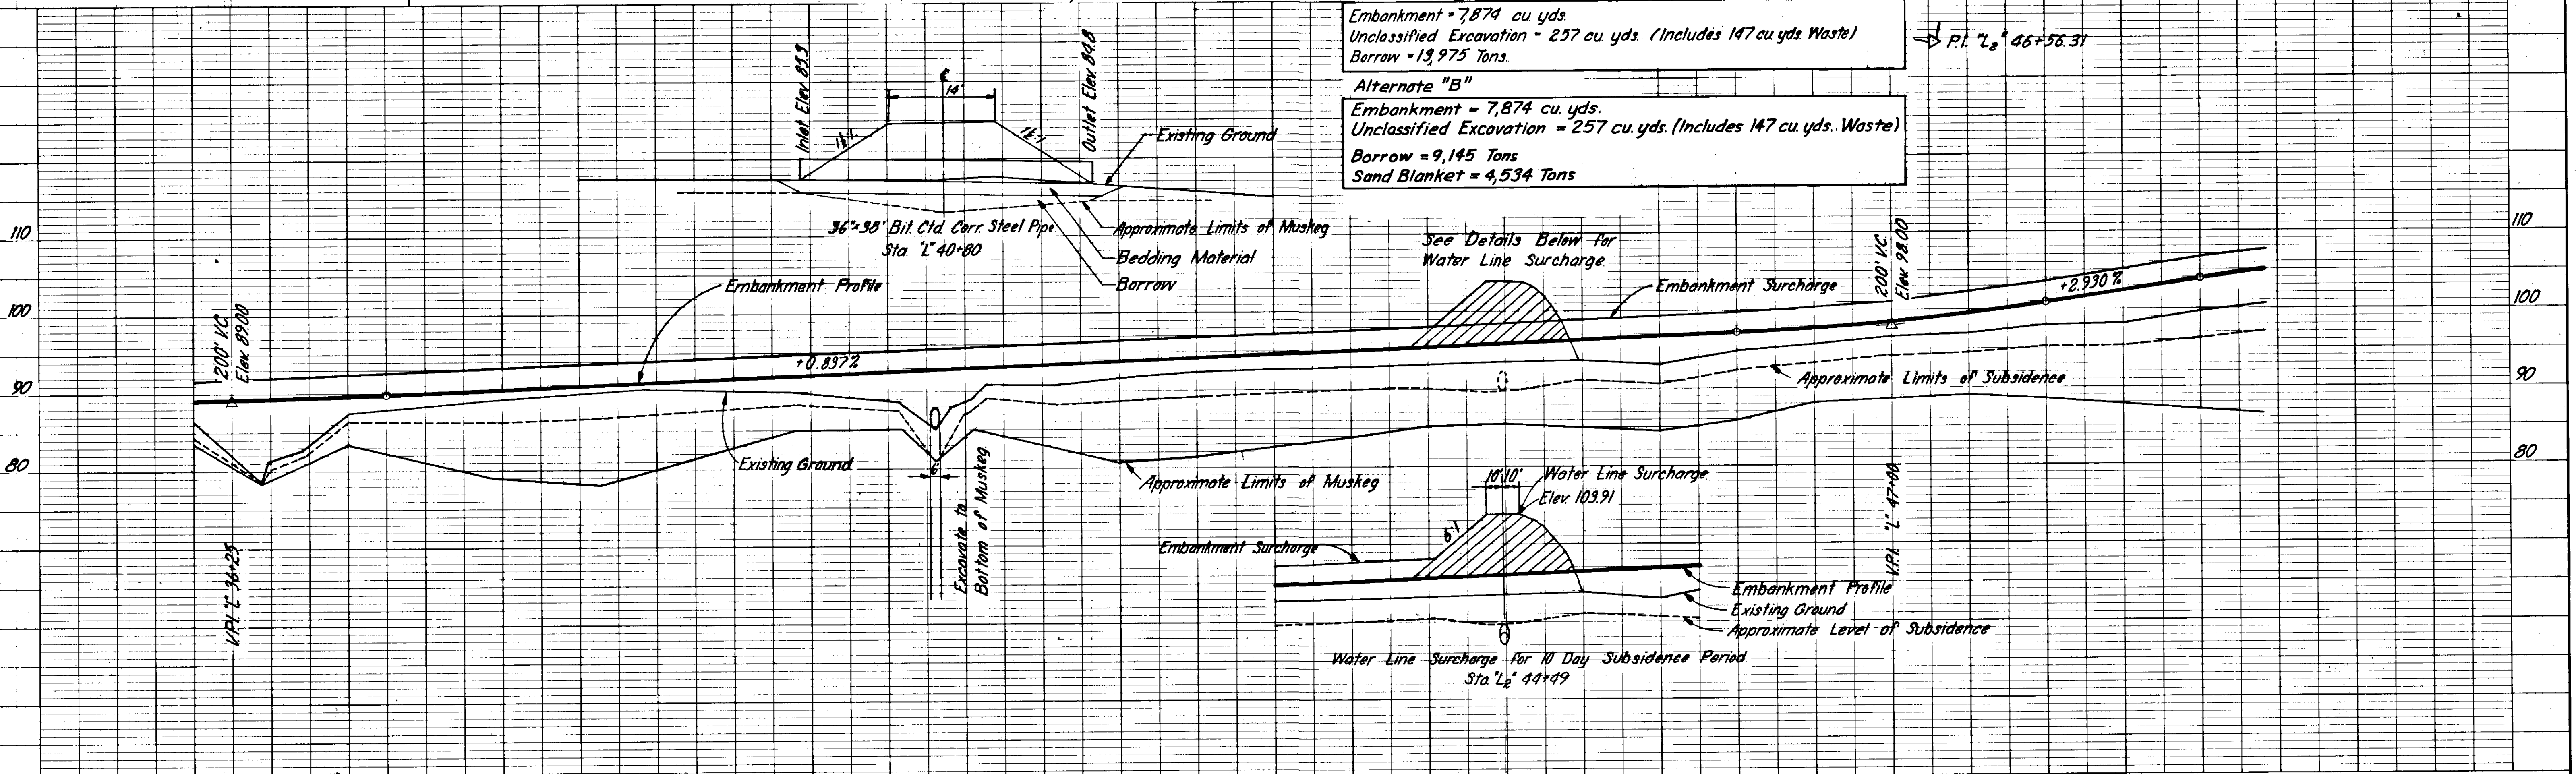 Embankment = 7,874 cu. yds.
Unclassified Excavation = 257 cu. yds. (Includes 147 cu. yds. Waste)
Borrow = 13,975 Tons.
P.I. "L2" 46+56.31
Alternate "B"
Embankment = 7,874 cu. yds.
Unclassified Excavation = 257 cu. yds. (Includes 147 cu. yds. Waste)
Borrow = 9,145 Tons
Sand Blanket = 4,534 Tons
Inlet Elev. 85.3
Outlet Elev. 84.8
14'
1½:1
1½:1
Existing Ground
36"x38' Bit. Ctd. Corr. Steel Pipe
Sta. "L" 40+80
Approximate Limits of Muskeg
Bedding Material
Borrow
See Details Below for
Water Line Surcharge
110
110
100
100
90
90
80
80
200' V.C.
Elev. 89.00
Embankment Profile
+0.837%
Embankment Surcharge
200' V.C.
Elev. 98.00
+2.930%
Approximate Limits of Subsidence
Existing Ground
6'
Excavate to
Bottom of Muskeg
Approximate Limits of Muskeg
V.P.I. "L" 36+25
V.P.I. "L" 47+00
10' 10'
Water Line Surcharge
Elev. 103.91
6:1
Embankment Surcharge
Embankment Profile
Existing Ground
Approximate Level of Subsidence
Water Line Surcharge for 10 Day Subsidence Period
Sta. "L2" 44+49